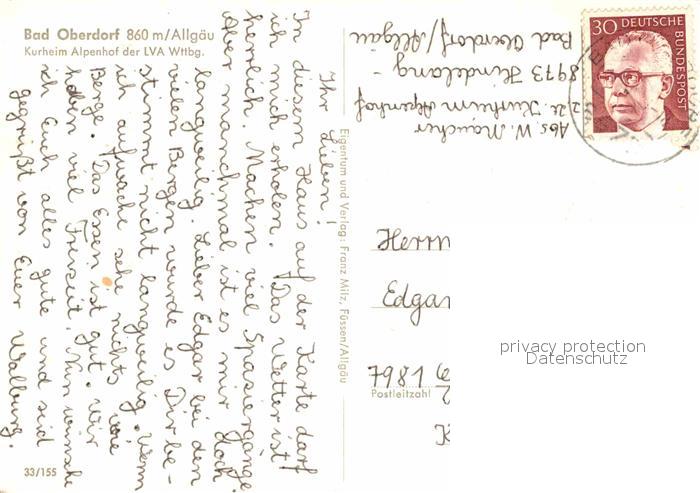 Bad Oberdorf 860 m/Allgäu
Kurheim Alpenhof der LVA Wttbg.
Ihr Lieben!
In diesem Haus auf der Karte darf
ich mich erholen. Das Wetter ist
herrlich. Machen viel Spasiergänge.
Aber manchmal ist es mir doch
langweilig. Lieber Edgar bei den
vielen Bergen wurde es Dir be-
stimmt nicht langweilig. Wenn
ich aufwache sehe nichts wie
Berge. Das Essen ist gut. Wir
haben viel Freizeit. Nun wünsche
ich Euch alles gute und seid
gegrüßt von Euer Walburg.
33/155
Eigentum und Verlag: Franz Milz, Füssen/Allgäu
Abs. W. Maucher
z. Zt. Kurheim Alpenhof
8973 Hindelang -
Bad Oberdorf/Allgäu
30 DEUTSCHE
BUNDESPOST
Herrn
Edgar
7981
Postleitzahl
privacy protection
Datenschutz